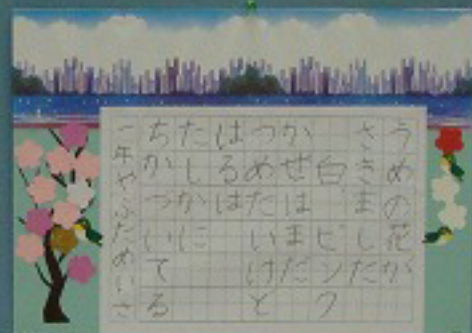 うめの花が
さきました
白　ピンク
かぜはまだ
つめたいけど
はるは
たしかに
ちかづいてる